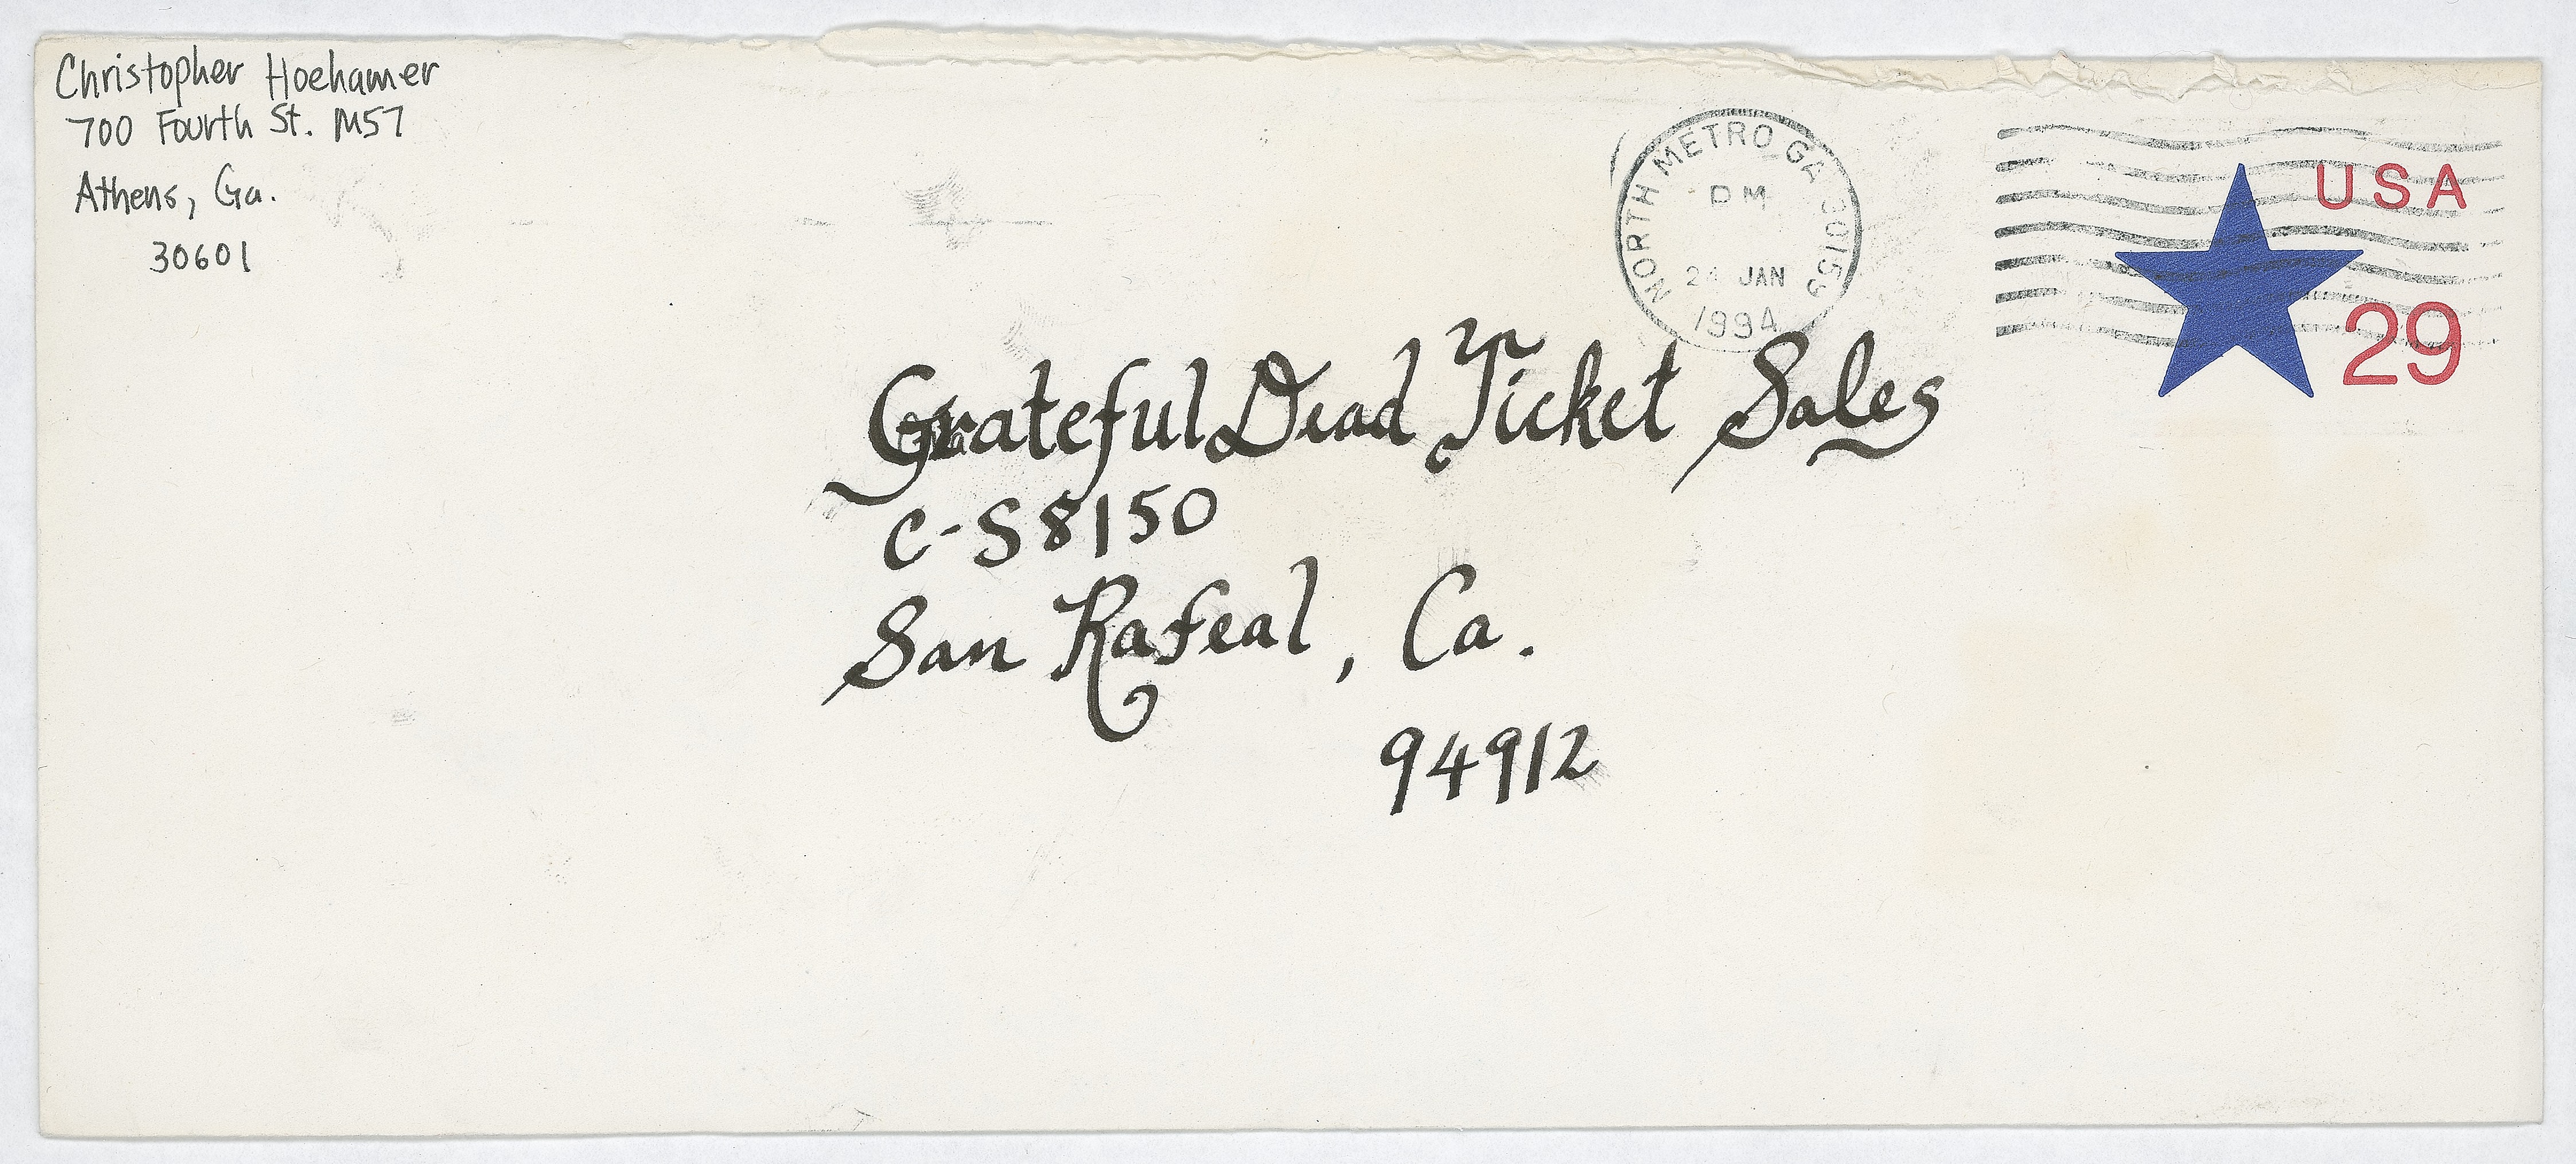 Christopher Hoehamer
700 Fourth St. M57
Athens, Ga.
30601
NORTH METRO GA 30153
PM
24 JAN
1994
USA
29
Grateful Dead Ticket Sales
C-S8150
San Rafeal, Ca.
94912